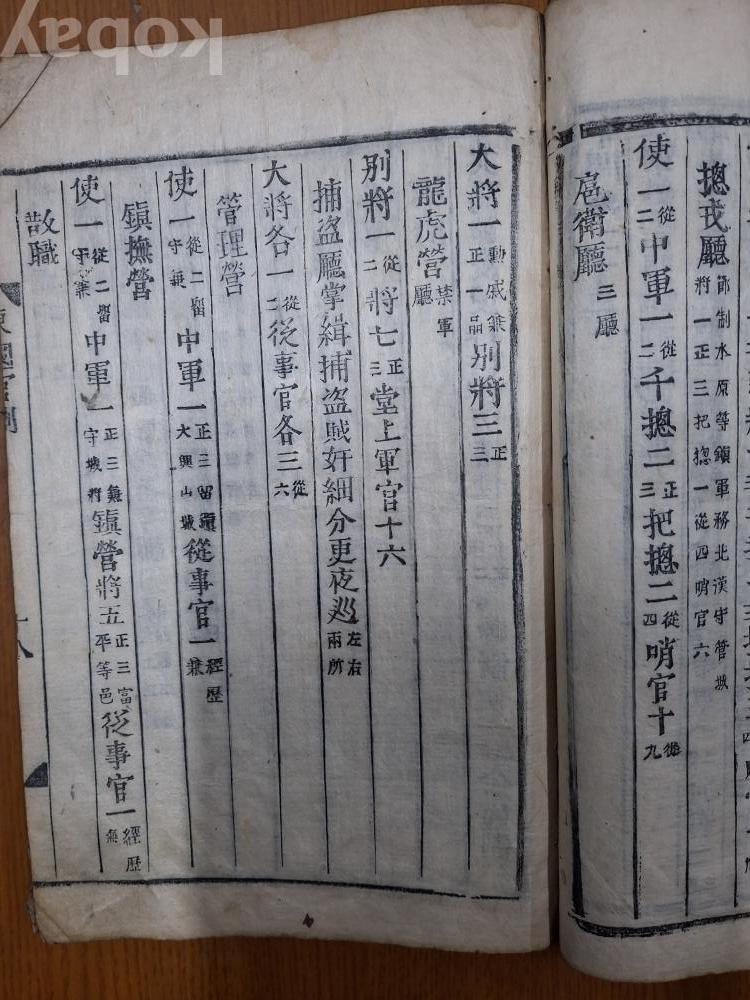 kobay
摠戎廳 節制水原等鎮軍務北漢守管城將一正三把摠一從四哨官六
使一從二中軍一從二千摠二正三把摠二從四哨官十從九
扈衛廳三廳
大將一勳戚兼正一品別將三正三
龍虎營禁軍廳
別將一從二將七正三堂上軍官十六
捕盜廳掌緝捕盜賊奸細分更夜巡左右兩所
大將各一從二從事官各三從六
管理營
使一從二留守兼中軍一正三留鎮大興山城從事官一經歷兼
鎮撫營
使一從二留守兼中軍一正三兼守城將鎮營將五正三富平等邑從事官一經歷兼
散職